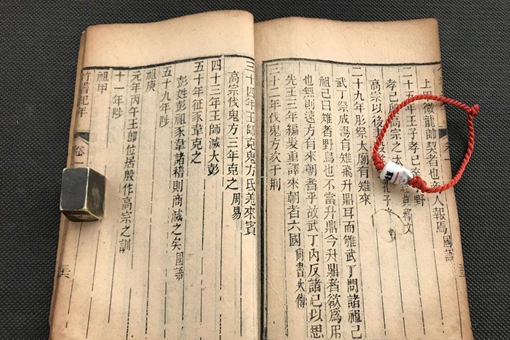 上甲微能帥契者也 人報焉 國語
二十五年王子孝己 野
孝己 高宗之
高宗以後妻
二十九年肜祭太廟有雉來
武丁祭成湯有雉飛升鼎耳而雊武丁問諸祖己
祖己曰雉者野鳥也不當升鼎今升鼎者欲爲用
也無則遠方有來朝者乎故武丁内反諸己以思
先王三年編髮重譯來朝者六國 尚書大傳
三十二年伐鬼方次于荆
三十四年王師克鬼方氐羌來賓
高宗伐鬼方三年克之 周易
四十三年王師滅大彭
五十年征豕韋克之
彭姓彭祖豕韋諸稽則商滅之矣 國語
五十九年陟
祖庚
元年丙午王即位居殷作高宗之訓
十一年陟
祖甲
竹書紀年 卷